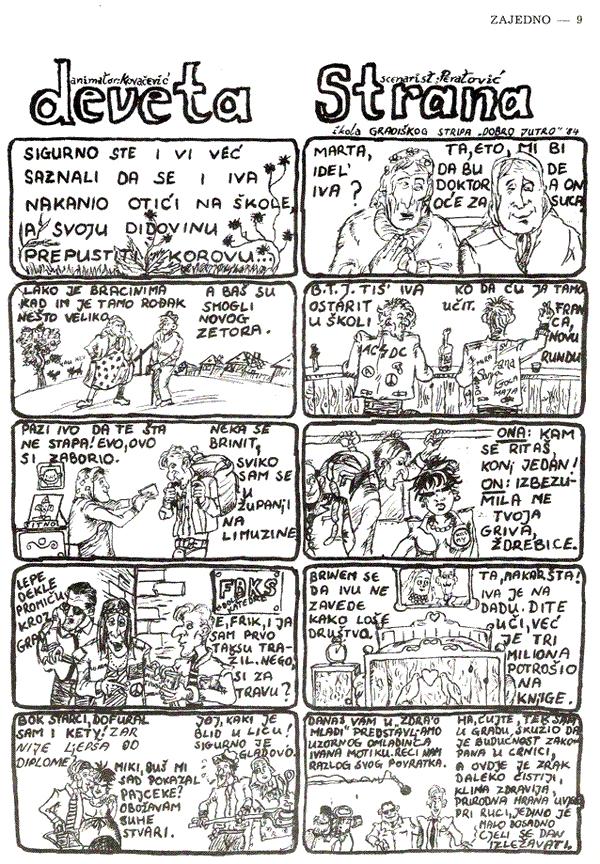 ZAJEDNO — 9
animator: Kovačević
deveta
scenarist: Peratović
Strana
škola GRADIŠKOG STRIPA „DOBRO JUTRO" '84
SIGURNO STE I VI VEĆ
SAZNALI DA SE I IVA
NAKANIO OTIĆI NA ŠKOLE,
A SVOJU DIDOVINU
PREPUSTITI KOROVU...
MARTA,
IDEL'
IVA?
TA, ETO, MI BI
DA BU DE
DOKTOR A ON
OĆE ZA SUCA
LAKO JE BRACINIMA
KAD IM JE TAMO ROĐAK
NEŠTO VELIKO.
A BAŠ SU
SMOGLI
NOVOG
ZETORA.
B.T. J. TIS' IVA
OSTARIT
U ŠKOLI
KO DA ĆU JA TAMO
UČIT.
FRAN
CA,
NOVU
RUNDU
AC DC
PAZI IVO DA TE ŠTA
NE STAPA! EVO, OVO
SI ZABORIO.
NEKA SE
BRINIT,
SVIKO
SAM SE
U
ŽUPANJI
NA
LIMUZINE
ONA: KAM
SE RITAŠ,
KONJ JEDAN!
ON: IZBEZU-
MILA ME
TVOJA
GRIVA,
ŽDREBICE.
LEPE
DEKLE
PROMIČU
KROZ
GRAD
FAKS
E, FRIK, I JA
SAM PRVO
TAKSU TRA-
ŽIL. NEGO,
SI ZA
TRAVU?
BRINEM SE
DA IVU NE
ZAVEDE
KAKO LOŠE
DRUŠTVO.
TA, MAKAR ŠTA!
IVA JE NA
DADU. DITE
UČI, VEĆ
JE TRI
MILIONA
POTROŠIO
NA
KNJIGE.
BOK STARCI, DOFURAL
SAM I KETY! ZAR
NIJE LJEPŠA OD
DIPLOME
JOJ, KAKI JE
BLID U LICU!
SIGURNO JE
GLADOVO.
MIKI, BUŠ MI
SAD POKAZAL
PAJCEKE?
OBOŽAVAM
BUHE
STVARI.
DANAS VAM U „ZDRA'O
MLADI" PREDSTAVLJAMO
UZORNOG OMLADINCA
IVANA MOTIKU. RECI NAM
RAZLOG SVOG POVRATKA.
HA, ČUJTE, TEK SAM
U GRADU, SKUŽIO DA
JE BUDUĆNOST ZAKO-
PANA U CRNICI,
A OVDJE JE ZRAK
DALEKO ČISTIJI,
KLIMA ZDRAVIJA,
PRIRODNA HRANA UVIJEK
PRI RUCI, JEDINO JE
MALO DOSADNO
CIJELI SE DAN
IZLEŽAVATI.